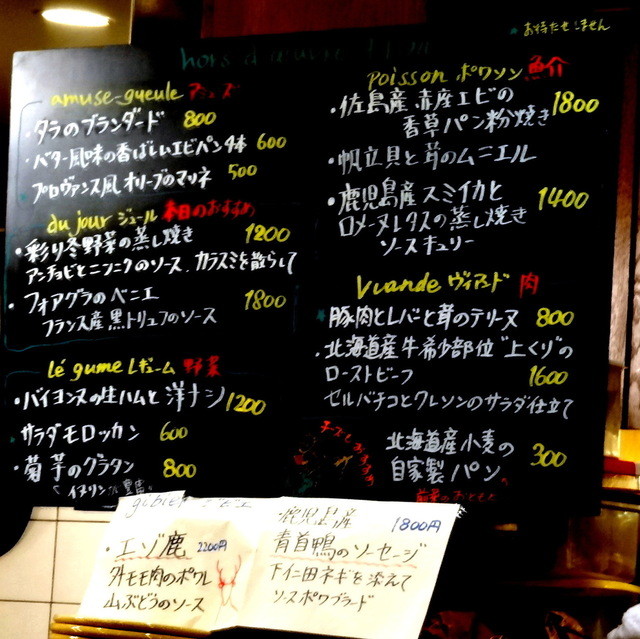 お待たせしません
hors d'œuvre
amuse-gueule アミューズ
・タラのブランダード 800
・バター風味の香ばしいエビパン4本 600
・プロヴァンス風オリーブのマリネ 500
du jour ジュール 本日のおすすめ
・彩り冬野菜の蒸し焼き 1200
アンチョビとニンニクのソース、カラスミを散らして
・フォアグラのベニエ 1800
フランス産黒トリュフのソース
légume レギューム 野菜
・バイヨンヌの生ハムと洋ナシ 1200
・サラダモロッカン 600
・菊芋のグラタン 800
poisson ポワソン 魚介
・佐島産 赤座エビの 1800
香草パン粉焼き
・帆立貝と茸のムニエル
・鹿児島産スミイカと 1400
ロメーヌレタスの蒸し焼き
ソースキュリー
Vuande ヴィアンド 肉
・豚肉とレバーと茸のテリーヌ 800
・北海道産牛希少部位"上くり"の
ローストビーフ 1600
セルバチコとクレソンのサラダ仕立て
北海道産小麦の
自家製パン 300
gibier ジビエ
・エゾ鹿 2200円
外モモ肉のポワレ
山ぶどうのソース
・鹿児島産 1800円
青首鴨のソーセージ
下仁田ネギを添えて
ソースポワブラード